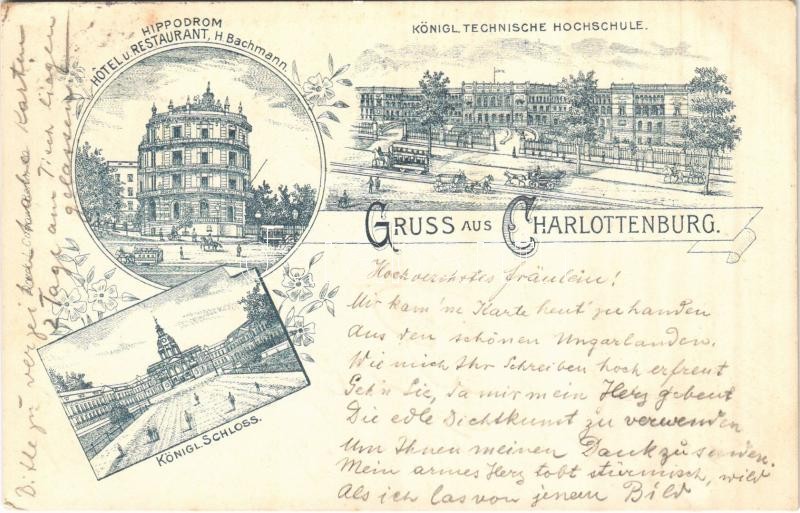 HIPPODROM
HÔTEL U. RESTAURANT, H. Bachmann.
KÖNIGL. TECHNISCHE HOCHSCHULE.
GRUSS AUS CHARLOTTENBURG.
KÖNIGL. SCHLOSS.
Hochverehrtes Fräulein!
Mir kam 'ne Karte heut' zu handen
Aus den schönen Ungarlanden.
Wie mich Ihr Schreiben hoch erfreut
Seh'n Sie, da mir mein Herz gebeut
Die edle Dichtkunst zu verwenden
Um Ihnen meinen Dank zu senden.
Mein armes Herz tobt stürmisch, wild
Als ich las von jenem Bild
Bitte zu verzeihen habe Karten
2 Tage am Tisch liegen
gelassen